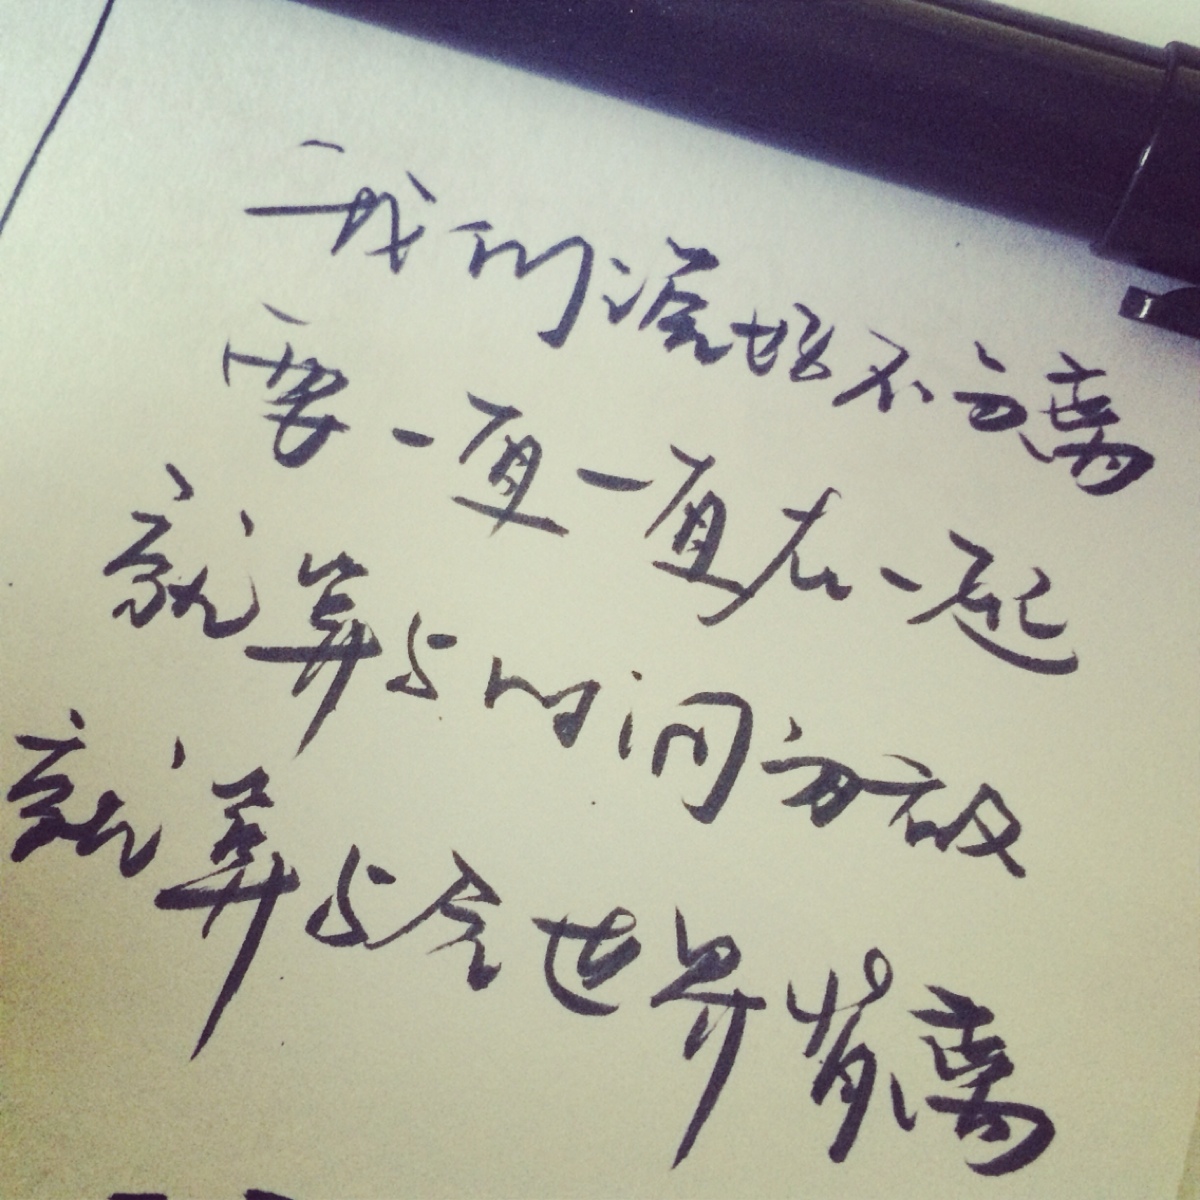 我们说好不分离
要一直一直在一起
就算与时间为敌
就算与全世界背离